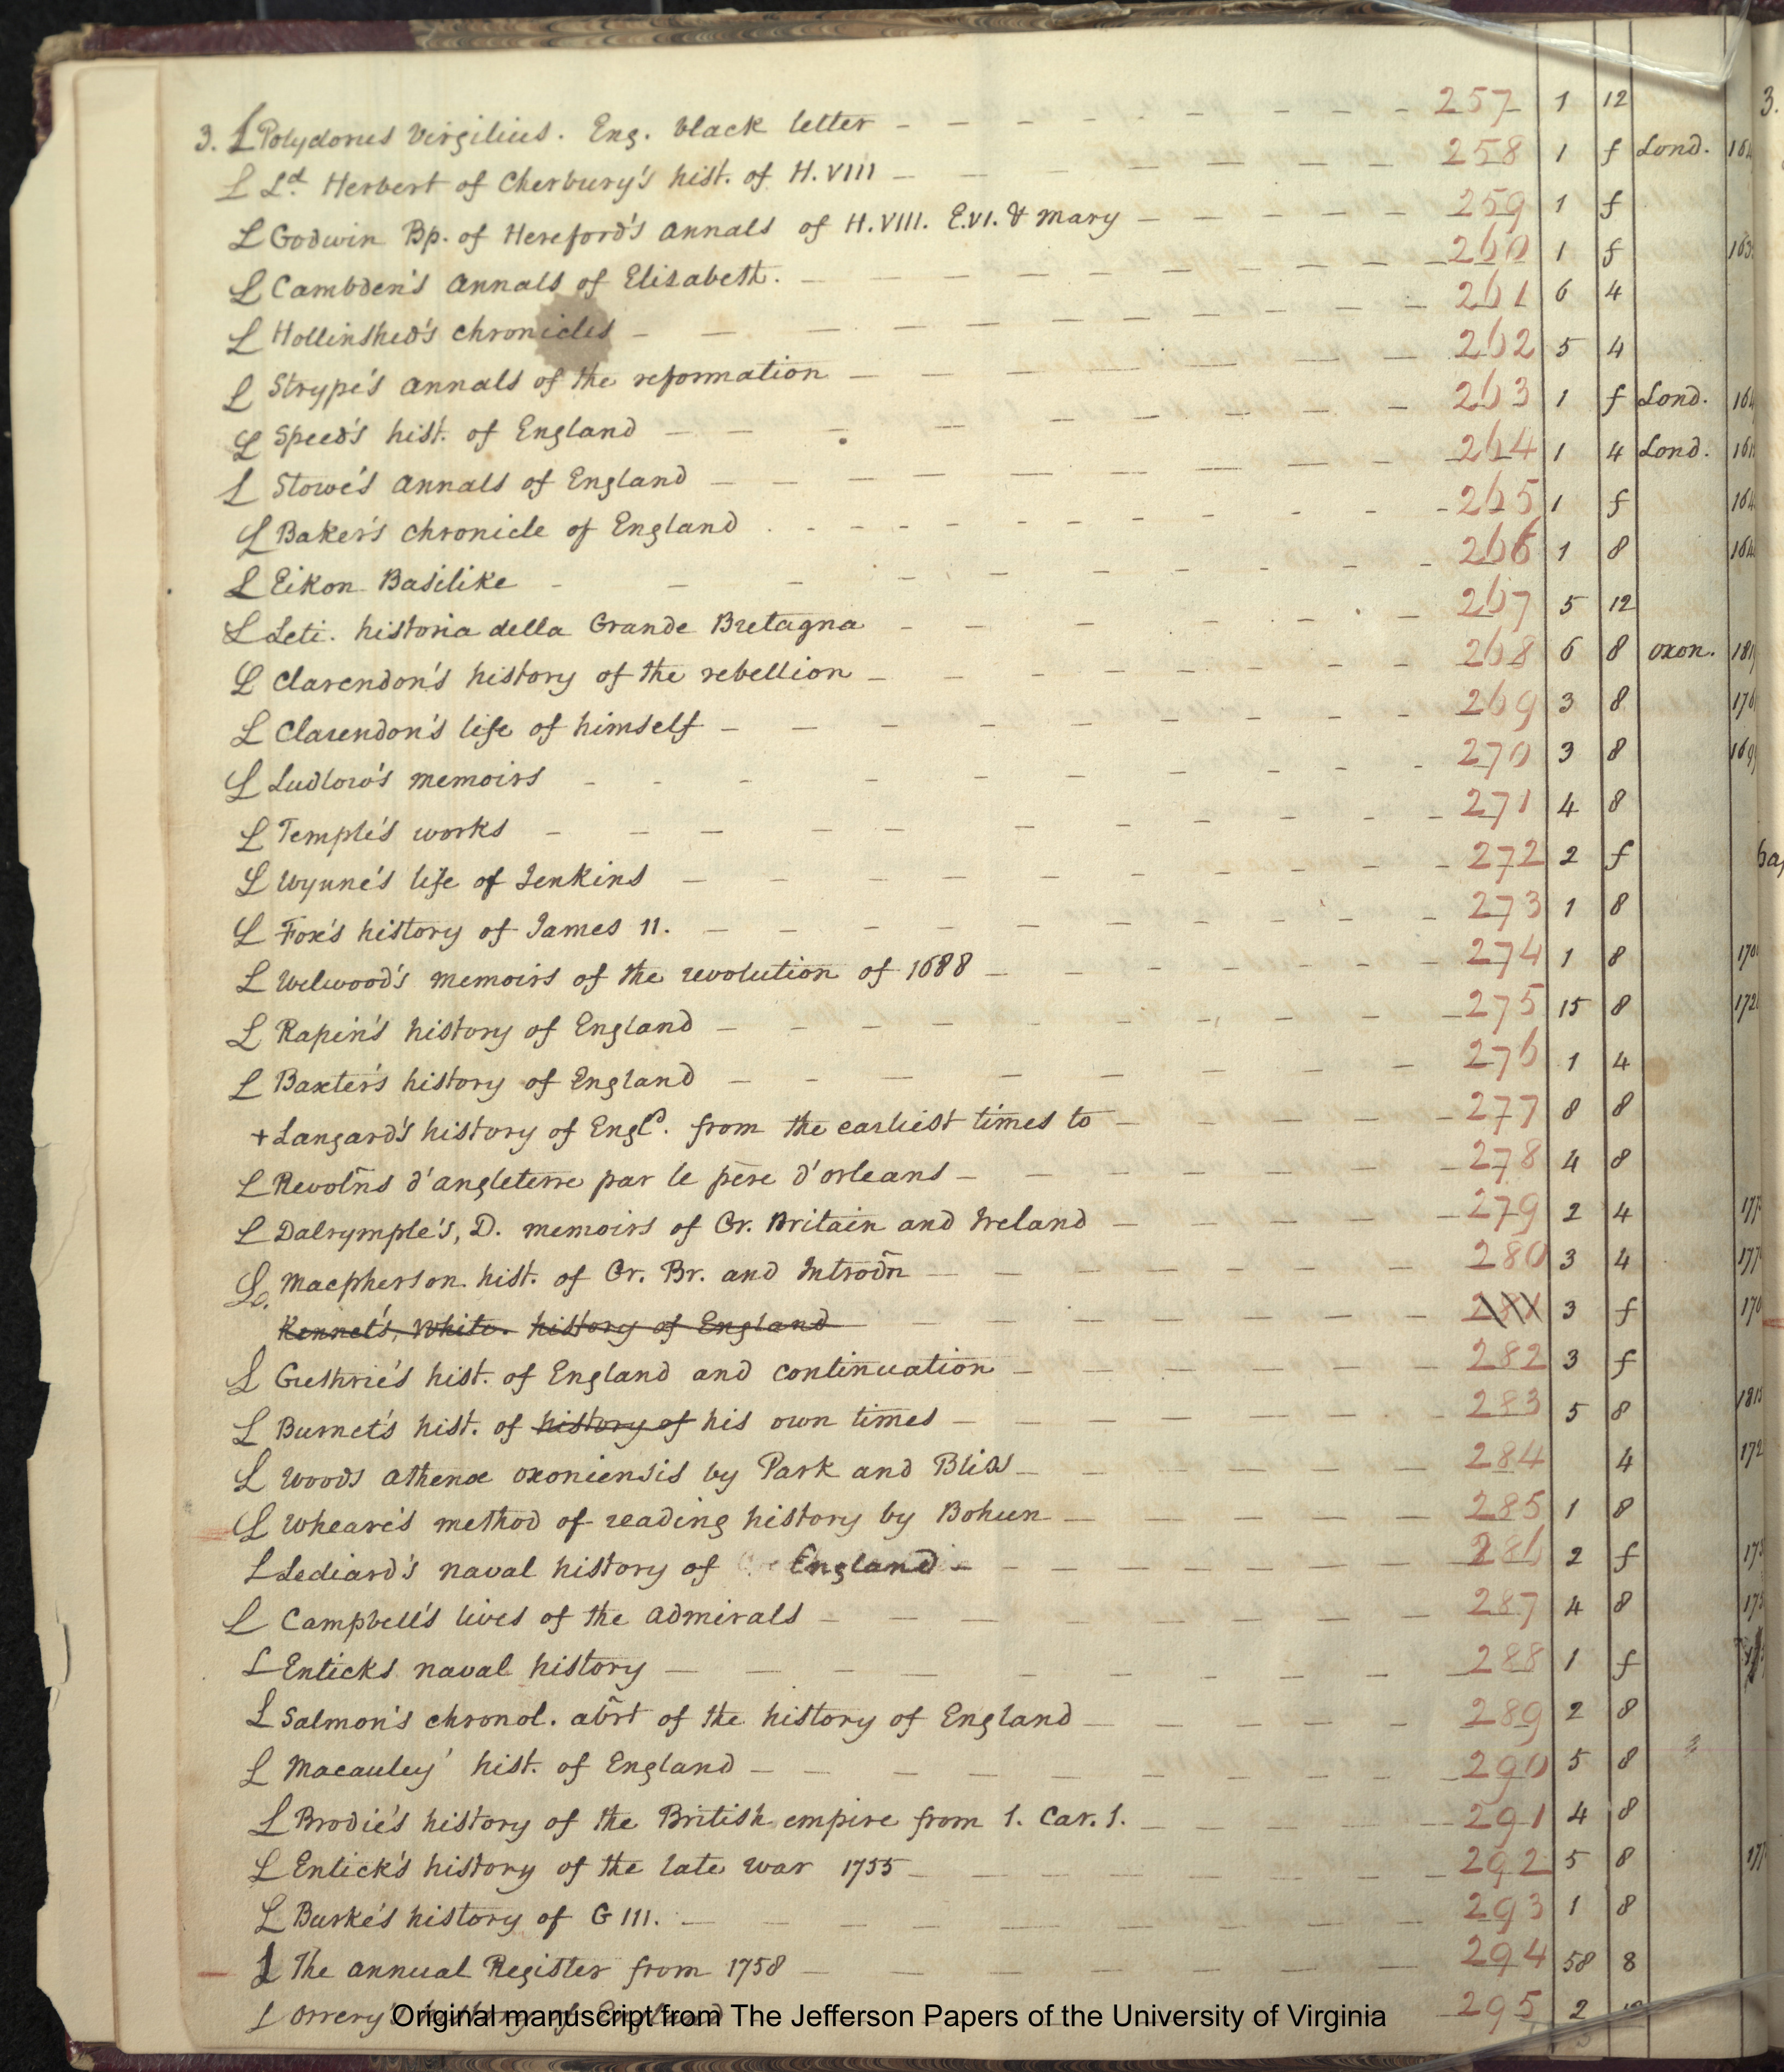 3. L Polydorus Virgilius. Eng. black letter - - - - 257 1 12
L Ld. Herbert of Cherbury's hist. of H. VIII - - - - 258 1 f Lond.
L Godwin Bp. of Hereford's annals of H. VIII. E.VI. & Mary - - - - 259 1 f
L Cambden's annals of Elizabeth. - - - - 260 1 f
L Hollinshed's chronicles - - - - 261 6 4
L Strype's annals of the reformation - - - - 262 5 4
L Speed's hist. of England - - - - 263 1 f Lond.
L Stowe's annals of England - - - - 264 1 4 Lond.
L Baker's chronicle of England - - - - 265 1 f
L Eikon Basilike - - - - 266 1 8
L Leti. historia della Grande Bretagna - - - - 267 5 12
L Clarendon's history of the rebellion - - - - 268 6 8 Oxon.
L Clarendon's life of himself - - - - 269 3 8
L Ludlow's memoirs - - - - 270 3 8
L Temple's works - - - - 271 4 8
L Wynne's life of Jenkins - - - - 272 2 f
L Fox's history of James II. - - - - 273 1 8
L Welwood's memoirs of the revolution of 1688 - - - - 274 1 8
L Rapin's history of England - - - - 275 15 8
L Baxter's history of England - - - - 276 1 4
+ Langard's history of Engld. from the earliest times to - - - - 277 8 8
L Revoln̄s d'angleterre par le père d'orleans - - - - 278 4 8
L Dalrymple's, D. memoirs of Gr. Britain and Ireland - - - - 279 2 4
L Macpherson hist. of Gr. Br. and Introdn̄ - - - - 280 3 4
Kennet's, White. history of England - - - - 281 3 f
L Guthrie's hist. of England and continuation - - - - 282 3 f
L Burnet's hist. of history of his own times - - - - 283 5 8
L Woods athenae oxoniensis by Park and Bliss - - - - 284 4
L Wheare's method of reading history by Bohun - - - - 285 1 8
L Lediard's naval history of England - - - - 286 2 f
L Campbell's lives of the admirals - - - - 287 4 8
L Enticks naval history - - - - 288 1 f
L Salmon's chronol. abr̄t of the history of England - - - - 289 2 8
L Macauley' hist. of England - - - - 290 5 8
L Brodie's history of the British empire from 1. Car. 1. - - - - 291 4 8
L Entick's history of the late war 1755 - - - - 292 5 8
L Burke's history of G III. - - - - 293 1 8
L The annual Register from 1758 - - - - 294 58 8
L Orrery's history of England 295 2
Original manuscript from The Jefferson Papers of the University of Virginia